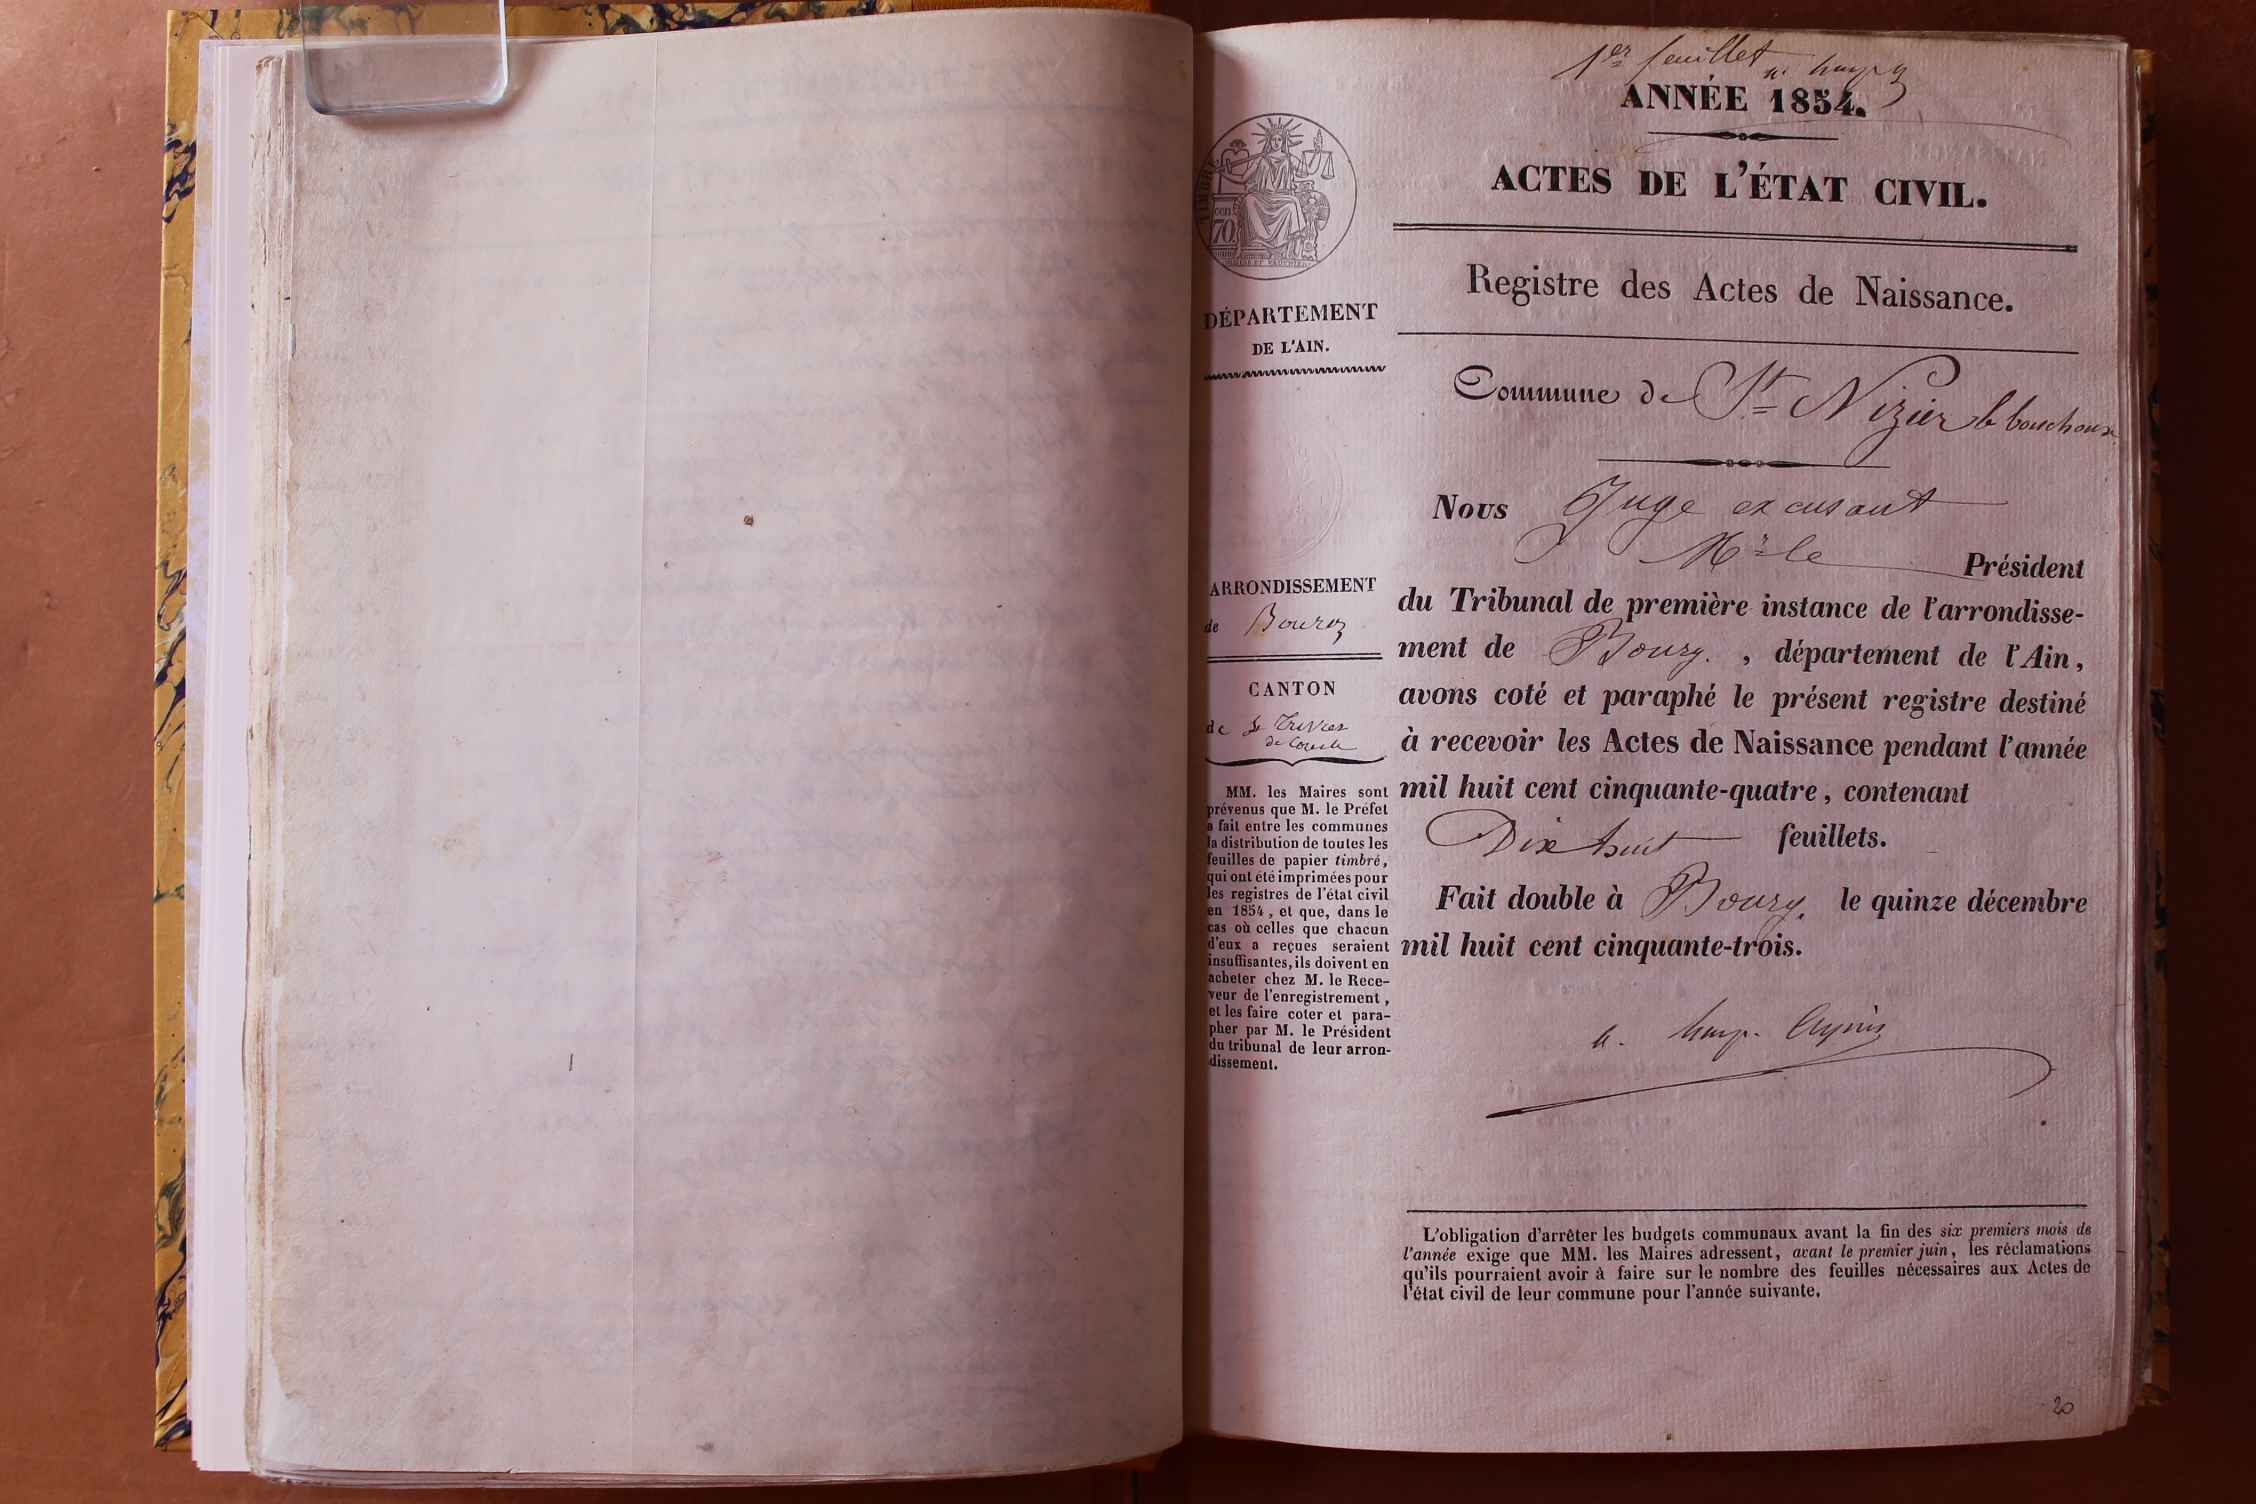 1er feuillet
ANNÉE 1854.
ACTES DE L'ÉTAT CIVIL.
Registre des Actes de Naissance.
TIMBRE
cen.
70
DÉPARTEMENT
DE L'AIN.
Commune de St Nizier le bouchoux
Nous Juge excusant
Mr le Président
du Tribunal de première instance de l'arrondisse-
ment de Bourg. , département de l'Ain,
avons coté et paraphé le présent registre destiné
à recevoir les Actes de Naissance pendant l'année
mil huit cent cinquante-quatre, contenant
Dix huit feuillets.
Fait double à Bourg. le quinze décembre
mil huit cent cinquante-trois.
ARRONDISSEMENT
de Bourg
CANTON
de St Trivier
de Courtes
MM. les Maires sont
prévenus que M. le Préfet
a fait entre les communes
la distribution de toutes les
feuilles de papier timbré,
qui ont été imprimées pour
les registres de l'état civil
en 1854, et que, dans le
cas où celles que chacun
d'eux a reçues seraient
insuffisantes, ils doivent en
acheter chez M. le Rece-
veur de l'enregistrement,
et les faire coter et para-
pher par M. le Président
du tribunal de leur arron-
dissement.
L'obligation d'arrêter les budgets communaux avant la fin des six premiers mois de
l'année exige que MM. les Maires adressent, avant le premier juin, les réclamations
qu'ils pourraient avoir à faire sur le nombre des feuilles nécessaires aux Actes de
l'état civil de leur commune pour l'année suivante.
20